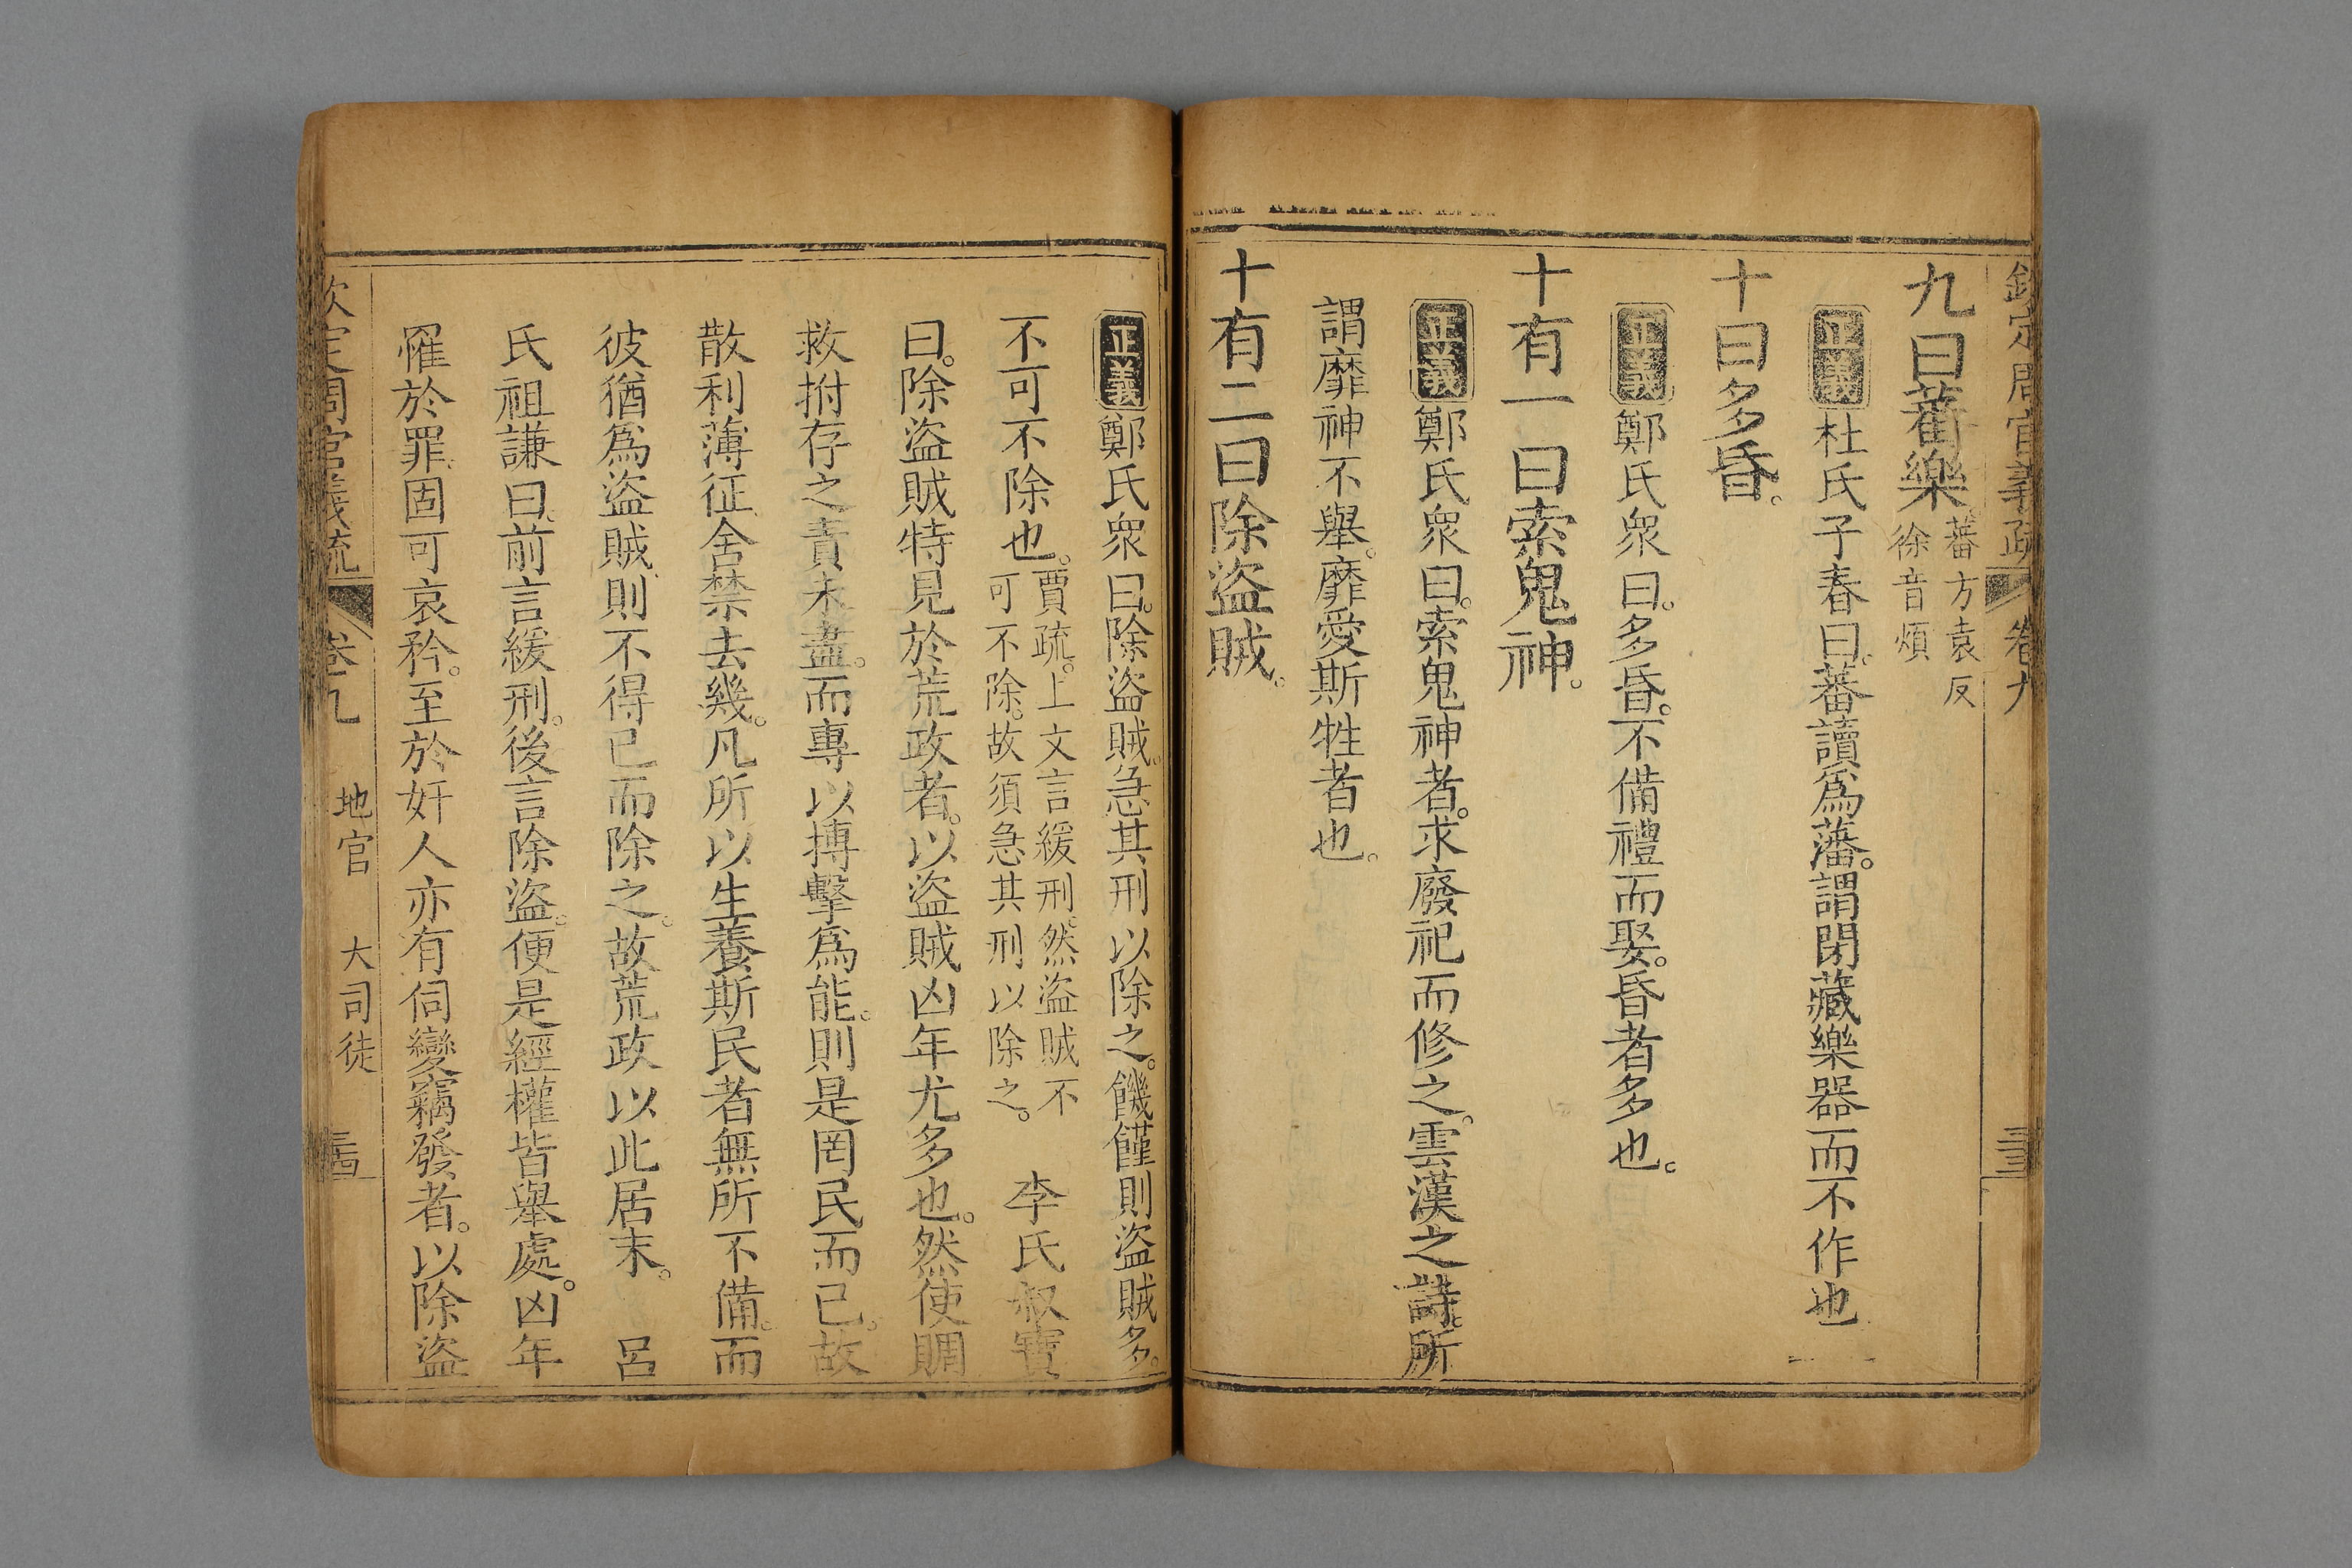 欽定周官義疏 卷九
九曰蕃樂。蕃方袁反
徐音煩
正義 杜氏子春曰。蕃讀爲藩。謂閉藏樂器而不作也
十曰多昏。
正義 鄭氏衆曰。多昏。不備禮而娶。昏者多也。
十有一曰索鬼神。
正義 鄭氏衆曰。索鬼神者。求廢祀而修之。雲漢之詩。所
謂靡神不舉。靡愛斯牲者也。
十有二曰除盜賊。
正義 鄭氏衆曰。除盜賊。急其刑以除之。饑饉則盜賊多。
不可不除也。賈疏。上文言緩刑。然盜賊不
可不除。故須急其刑以除之。 李氏叔寶
曰。除盜賊特見於荒政者。以盜賊凶年尤多也。然使賙
救拊存之責未盡。而專以搏擊爲能。則是罔民而已。故
散利薄征舍禁去幾。凡所以生養斯民者無所不備。而
彼猶爲盜賊。則不得已而除之。故荒政以此居末。 呂
氏祖謙曰。前言緩刑。後言除盜。便是經權皆舉處。凶年
罹於罪固可哀矜。至於奸人亦有伺變竊發者。以除盜
欽定周官義疏 卷九 地官 大司徒